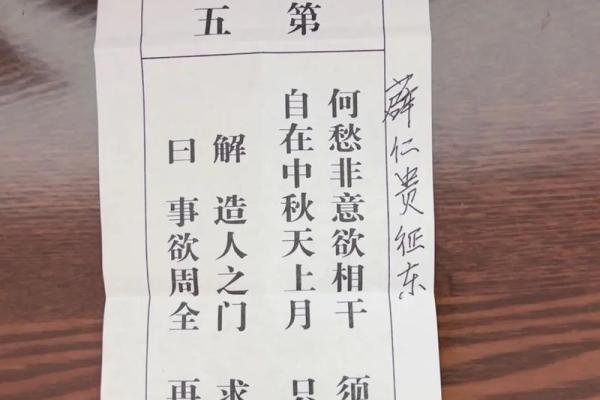 薛仁贵征东
第五
何愁非意欲相干 须
自在中秋天上月 只
解 造人之门 求
曰 事欲周全 再